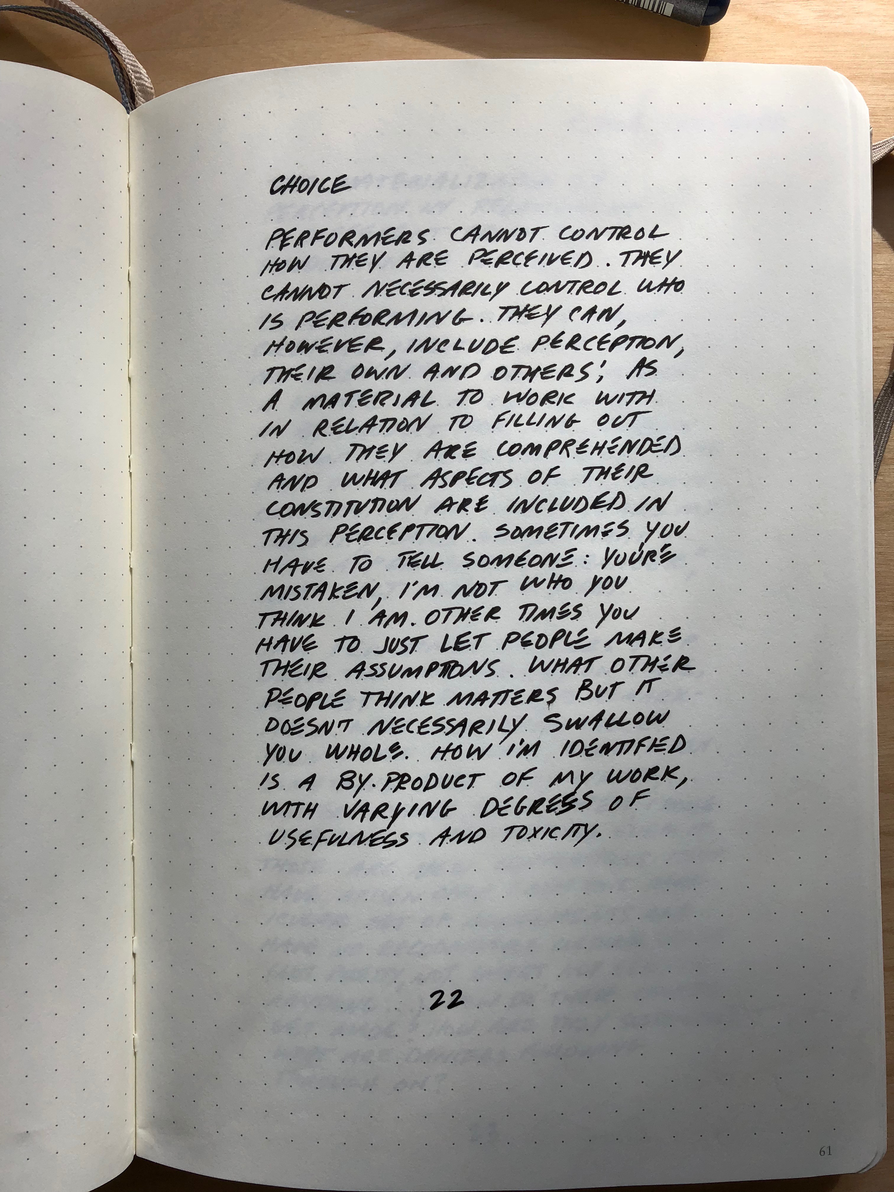 CHOICE
PERFORMERS CANNOT CONTROL
HOW THEY ARE PERCEIVED. THEY
CANNOT NECESSARILY CONTROL WHO
IS PERFORMING. THEY CAN,
HOWEVER, INCLUDE PERCEPTION,
THEIR OWN AND OTHERS', AS
A MATERIAL TO WORK WITH
IN RELATION TO FILLING OUT
HOW THEY ARE COMPREHENDED
AND WHAT ASPECTS OF THEIR
CONSTITUTION ARE INCLUDED IN
THIS PERCEPTION. SOMETIMES YOU
HAVE TO TELL SOMEONE: YOU'RE
MISTAKEN, I'M NOT WHO YOU
THINK I AM. OTHER TIMES YOU
HAVE TO JUST LET PEOPLE MAKE
THEIR ASSUMPTIONS. WHAT OTHER
PEOPLE THINK MATTERS BUT IT
DOESN'T NECESSARILY SWALLOW
YOU WHOLE. HOW I'M IDENTIFIED
IS A BY-PRODUCT OF MY WORK,
WITH VARYING DEGREES OF
USEFULNESS AND TOXICITY.
22
61